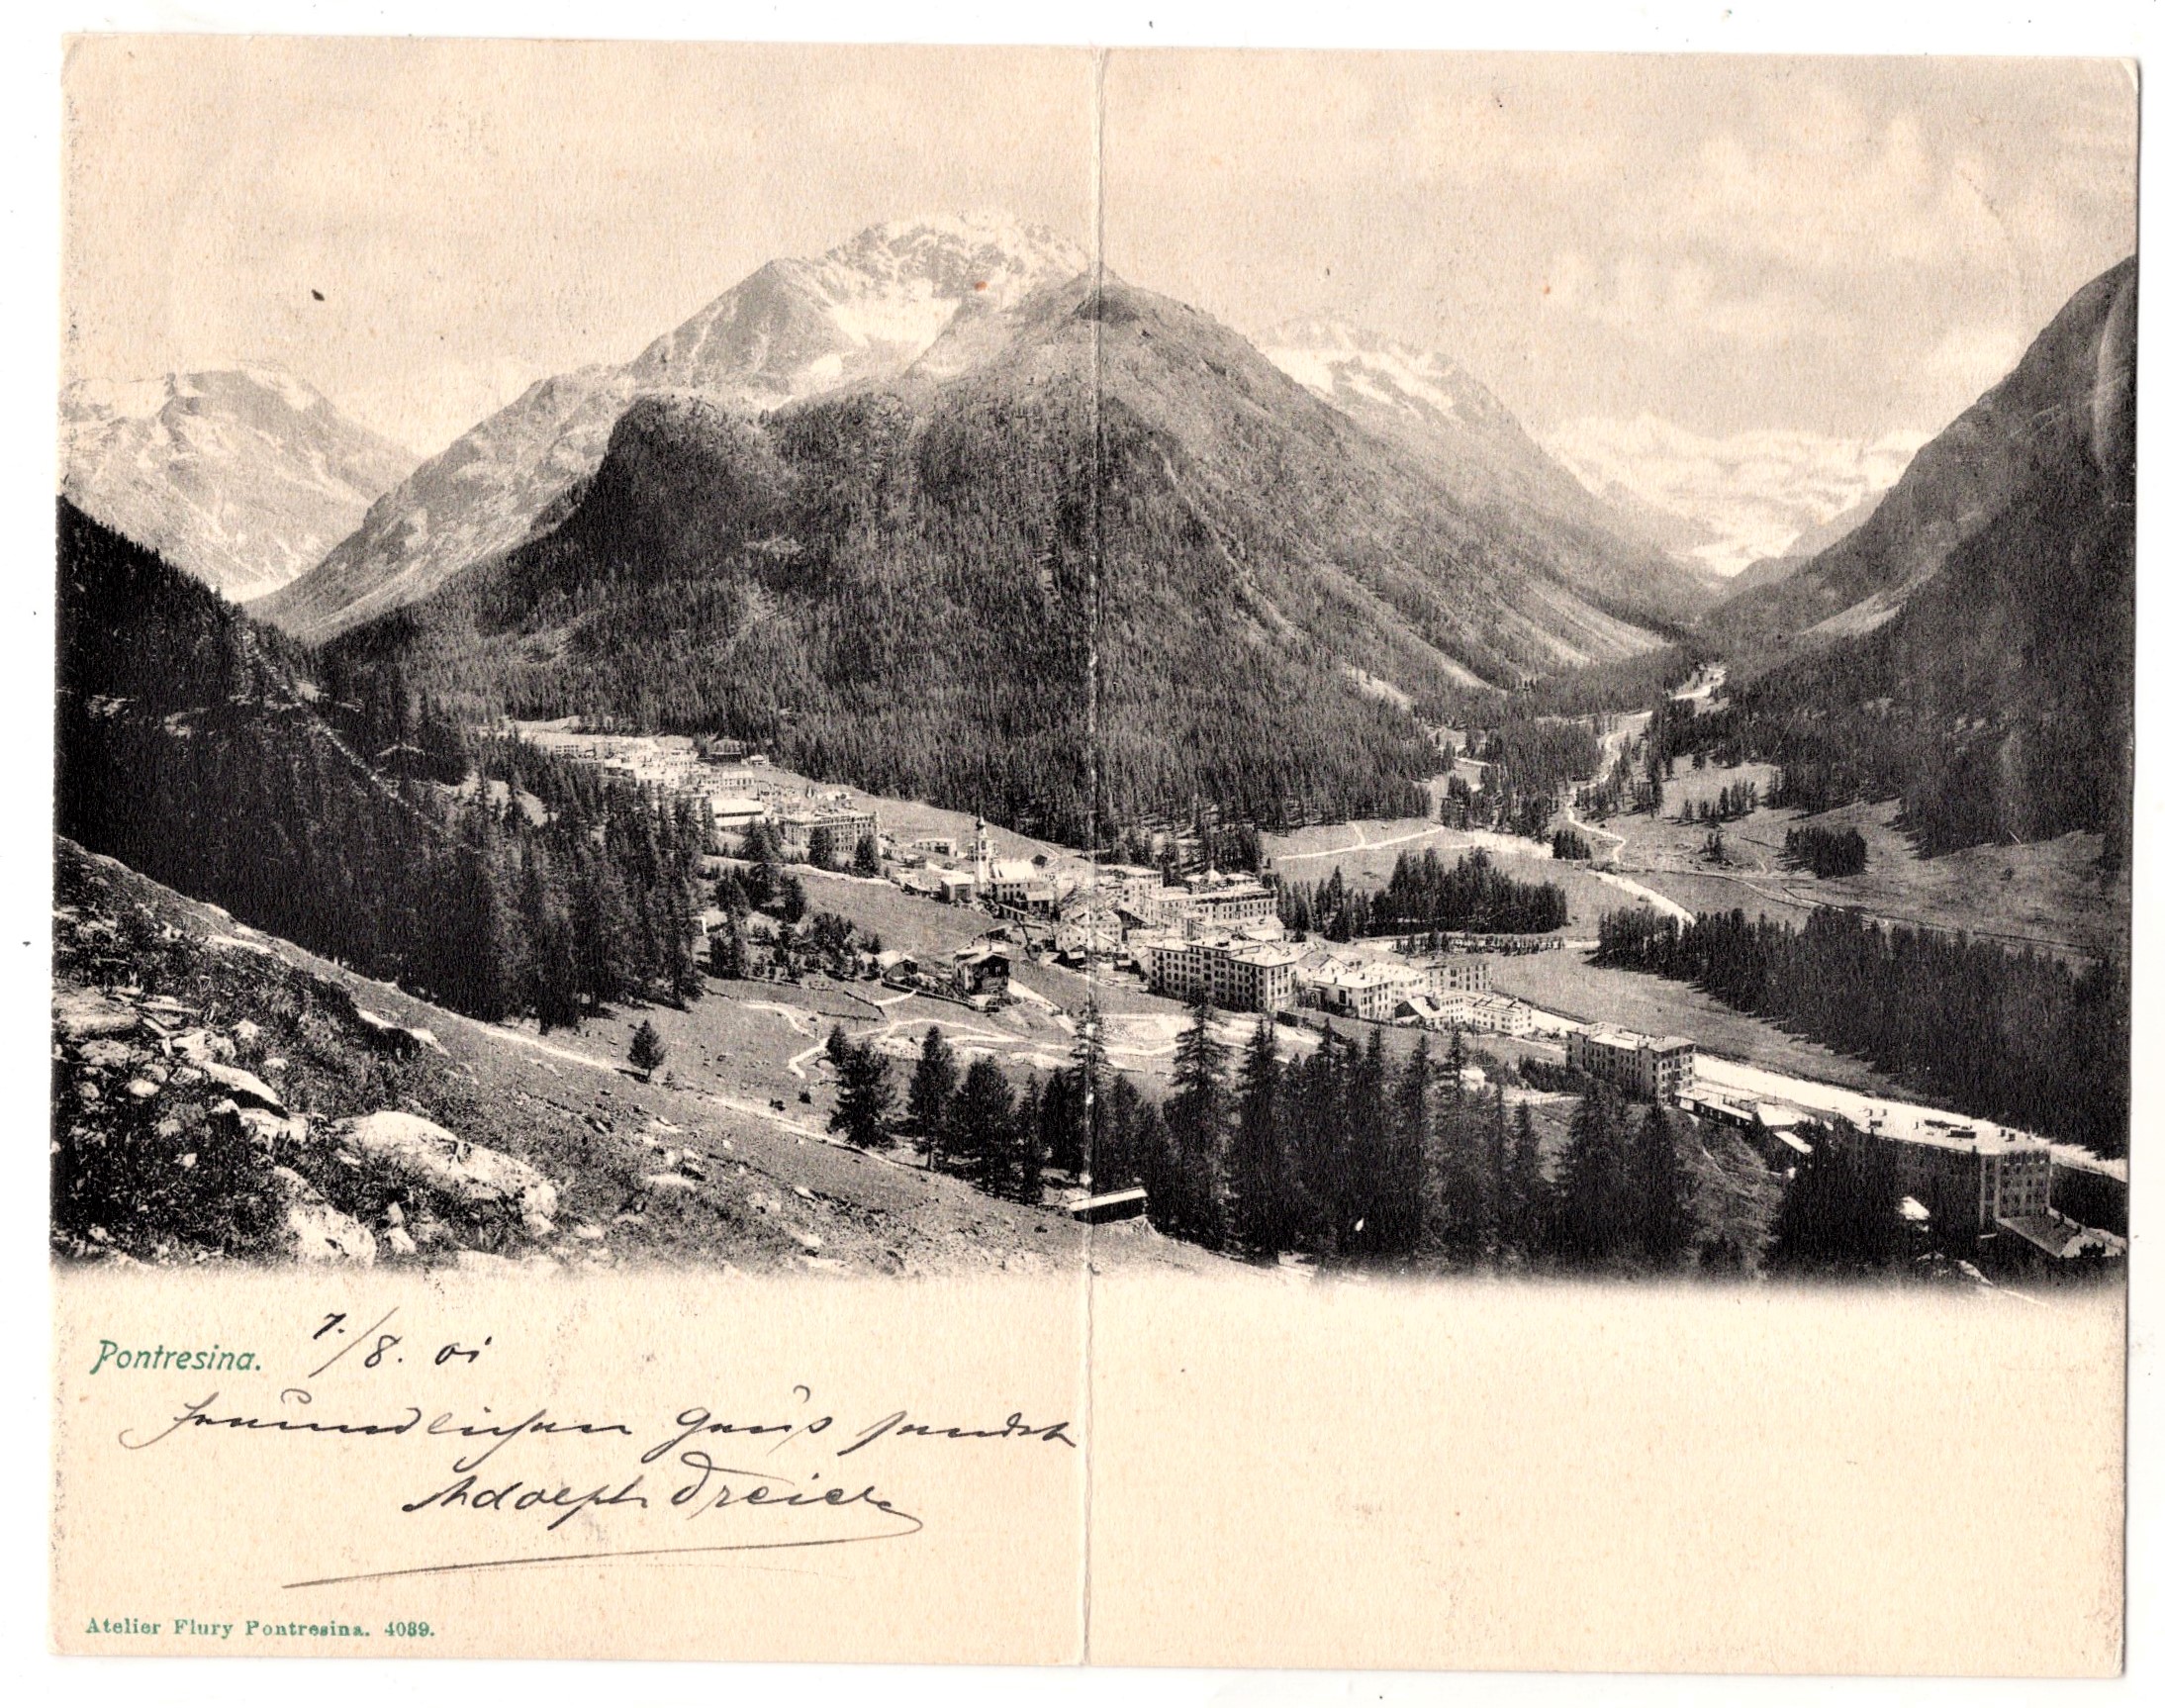 Pontresina. 7./8. 01
Freundlichen Gruss sendet
Adolph Dreier
Atelier Flury Pontresina. 4089.